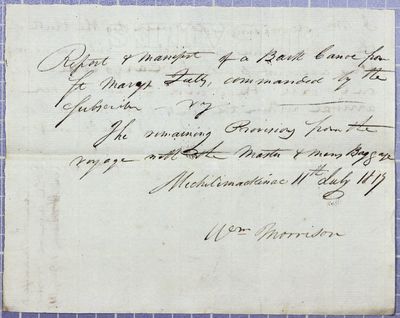 Report & Manifest of a Bark Canoe from
St Marys Falls, commanded by the
Subscriber viz
The remaining Provisions from the
voyage with the Master & mens Baggage
Michilimackinac 11th July 1819
Wm Morrison